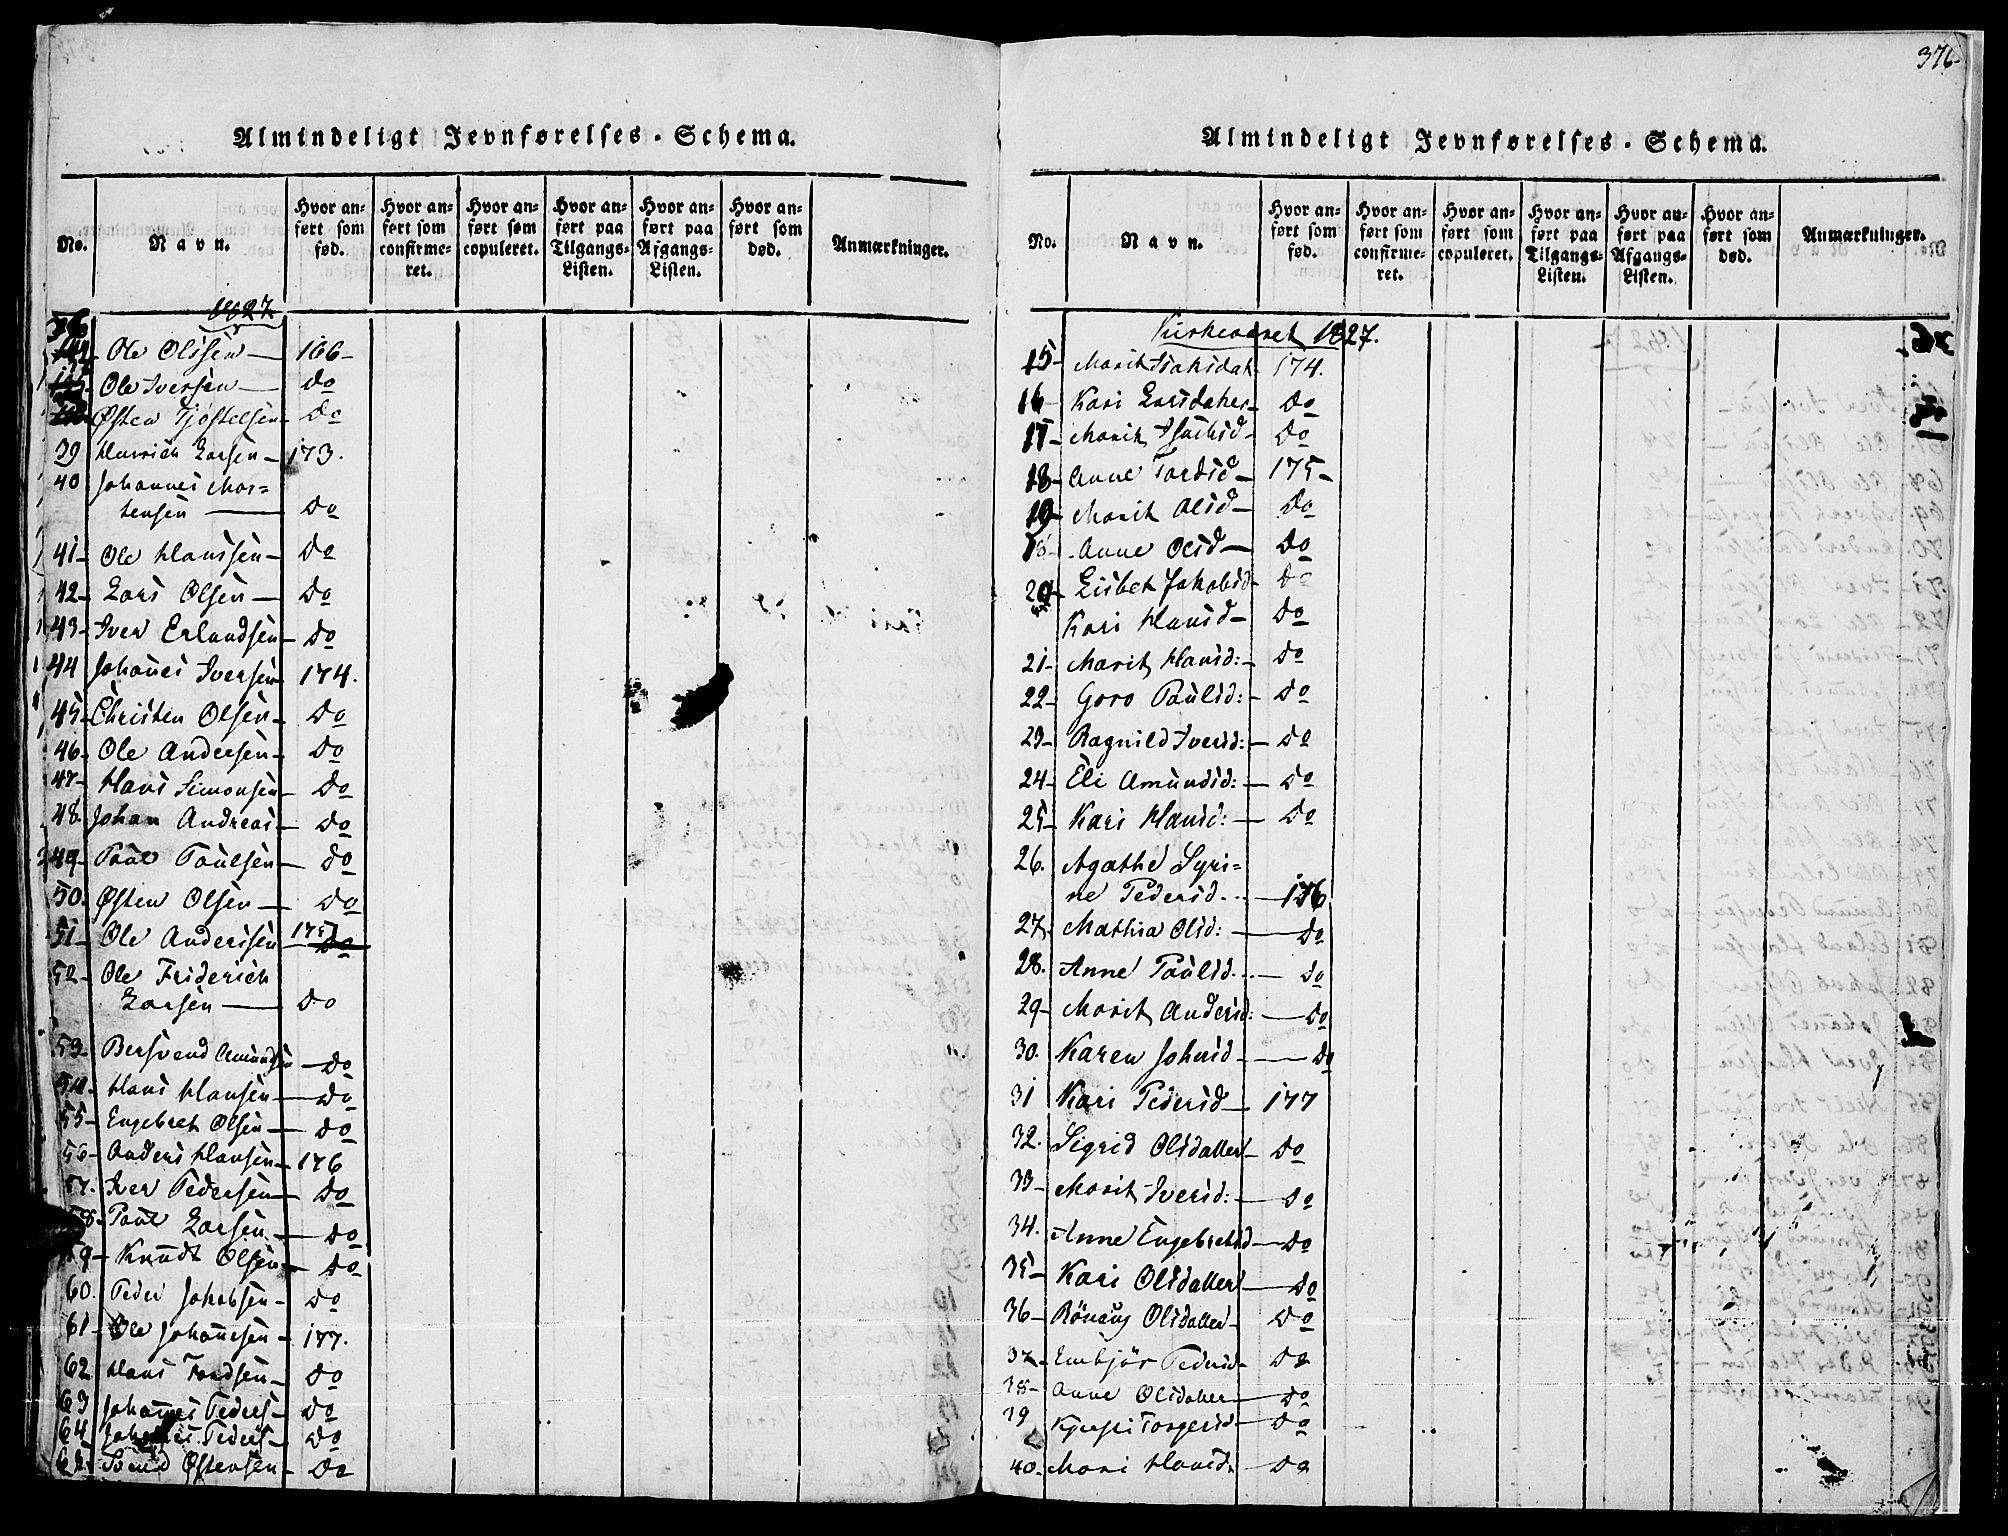 376
Almindeligt Jevnførelses-Schema.
No.
Navn.
Hvor anført som fød.
Hvor anført som confirmeret.
Hvor anført som copuleret.
Hvor anført paa Tilgangs-Listen.
Hvor anført paa Afgangs-Listen.
Hvor anført som død.
Anmærkninger.
1827
Ole Olssen — 166-
Ole Iversen — do
Østen Tjøstelsen — do
39 Henrich Larsen — 173.
40 Johannes Mor=
tensen — do
41- Ole Hanssen — do
42- Lars Olsen — do
43- Iver Erlandsen — do
44 Johanes Iversen 174.
45- Christen Olsen — do
46- Ole Andersen — do
47- Hans Simonsen — do
48. Johan Andreas — do
49- Poul Poulsen — do
50. Østen Olsen — do
51- Ole Anderssen 175 do
52- Ole Friderich
Larsen — do
53- Bersvend Amundsen — do
54. Hans Hansen — do
55- Engebret Olsen — do
56- Anders Hansen — 176
57. Iver Pedersen — do
58- Poul Larsen — do
59- Knudt Olsen — do
60. Peder Jakobsen — do
61- Ole Johannesen — 177.
62 Hans Tordsen — do
63 Johannes Peders — do
64 Johannes Peders — do
65- Svend Østensen — do
Almindeligt Jevnførelses-Schema.
No.
Navn.
Hvor anført som fød.
Hvor anført som confirmeret.
Hvor anført som copuleret.
Hvor anført paa Tilgangs-Listen.
Hvor anført paa Afgangs-Listen.
Hvor anført som død.
Anmærkninger.
Kirkeaaret 1827.
15- Marit Isaksdat 174.
16 Kari Larsdater — do
17- Marit Isachsd — do
18- Anne Tordsd — 175-
19- Marit Olsd — do
Anne Olsd — do
20- Lisbet Jakobsd — do
Kari Hansd — do
21- Marit Hansd: — do
22- Goro Poulsd: — do
23- Ragnild Iversd: — do
24- Eli Amundsd: — do
25- Kari Hansd: — do
26. Agathe Syri=
ne Pedersd... — 176
27. Mathia Olsd: — do
28. Anne Poulsd... — do
29- Marit Andersd: — do
30. Karen Johnsd — do
31 Kari Pedersd — 177
32. Sigrid Olsdatter — do
33- Marit Iversd: — do
34. Anne Engebretsd — do
35- Kari Olsdatter — do
36- Rönaug Olsdatter — do
37- Embjör Pedersd — do
38- Anne Olsdatter — do
39 Torgersd — do
40- Mari Hansd. — do